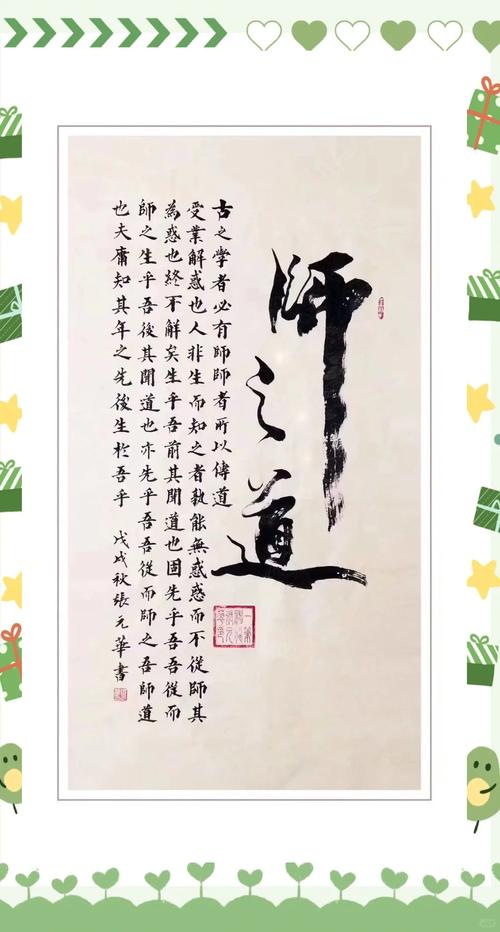 師之道
古之學者必有師師者所以傳道
受業解惑也人非生而知之者孰能無惑惑而不從師其
為惑也終不解矣生乎吾前其聞道也固先乎吾吾從而
師之生乎吾後其聞道也亦先乎吾吾從而師之吾師道
也夫庸知其年之先後生於吾乎 戊戌秋張元華書